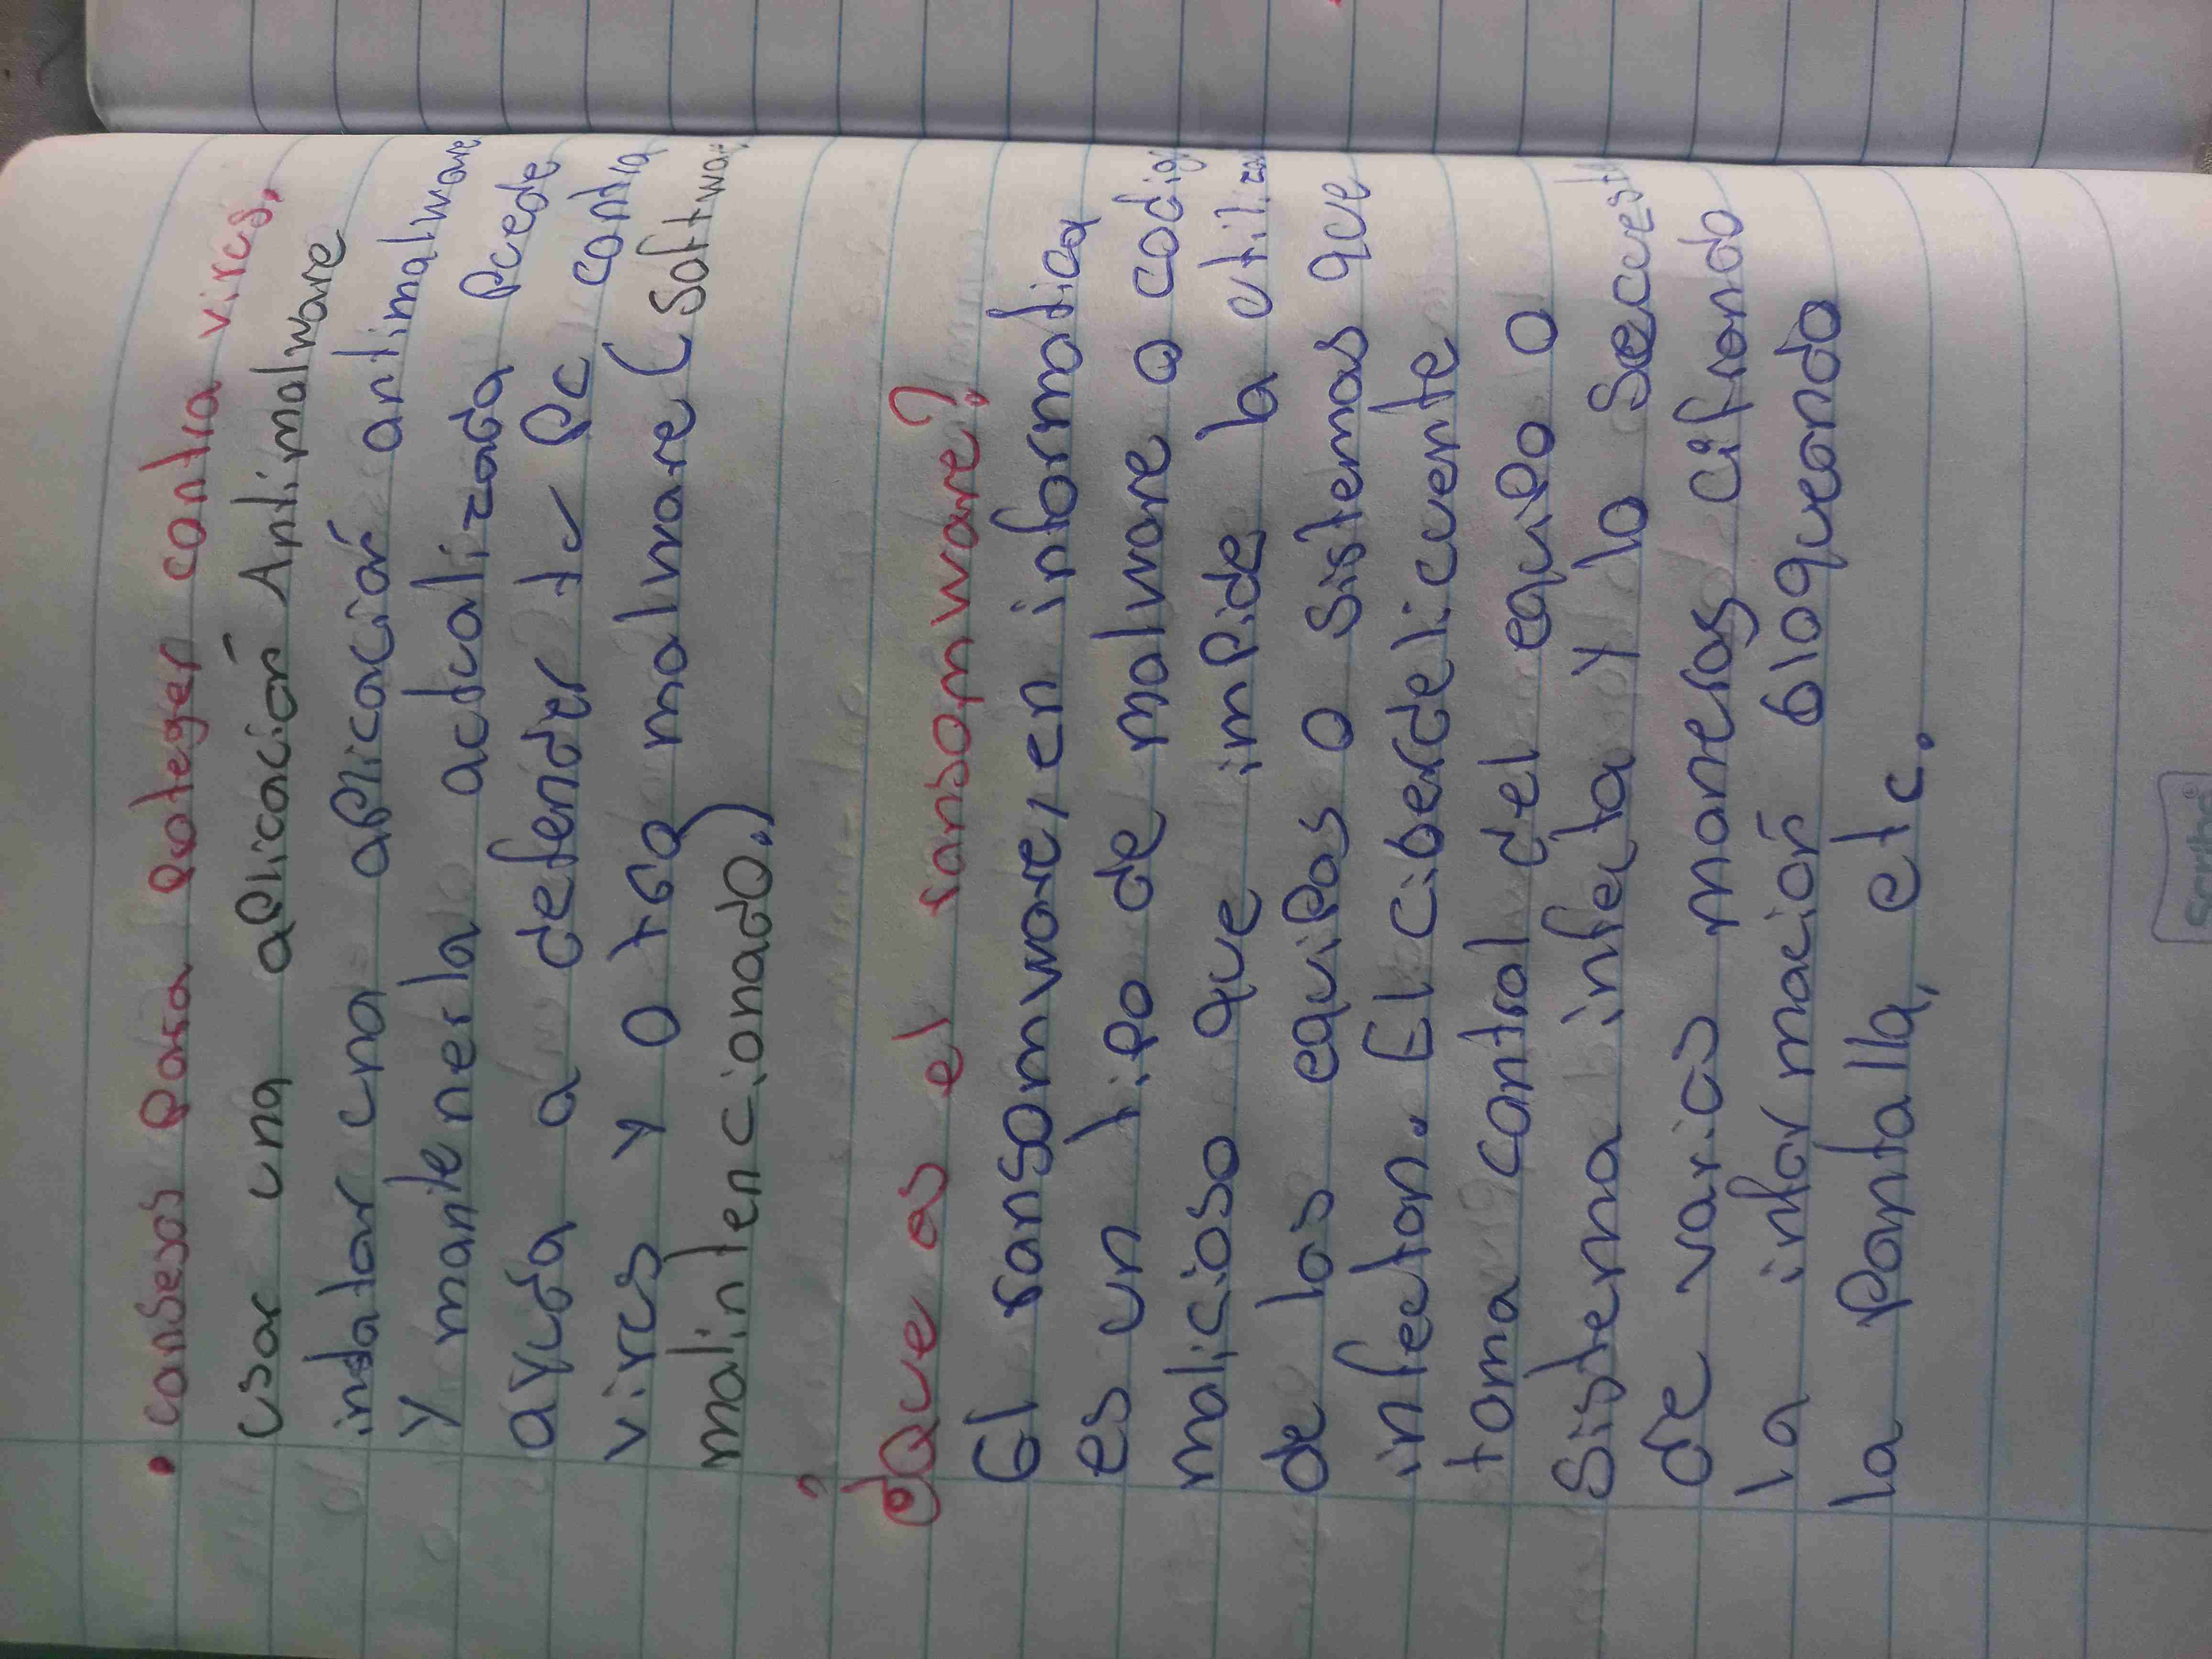 • consejos para proteger contra virus.
usar una aplicación Antimalware
instalar una aplicación antimalware
y mantenerla actualizada puede
ayuda a defender tu PC contra
virus y otro malware (software
malintencionado.)
¿Que es el ransomware?
El ransomware, en informatica
es un tipo de malware o codigo
malicioso que impide la utiliza
de los equipos o sistemas que
infectan. El ciberdelicuente
toma control del equipo o
sistema infecta y lo secuest
de varias maneras cifrando
la información bloqueando
la pantalla, etc.
Scribe